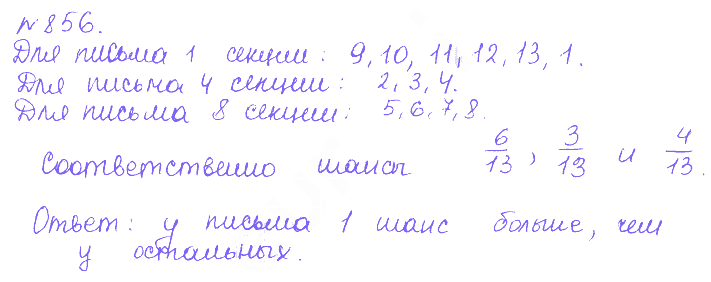 № 856.
Для письма 1 секции: 9, 10, 11, 12, 13, 1.
Для письма 4 секции: 2, 3, 4.
Для письма 8 секции: 5, 6, 7, 8.
Соответственно шансы 6/13, 3/13 и 4/13.
Ответ: у письма 1 шанс больше, чем
у остальных.